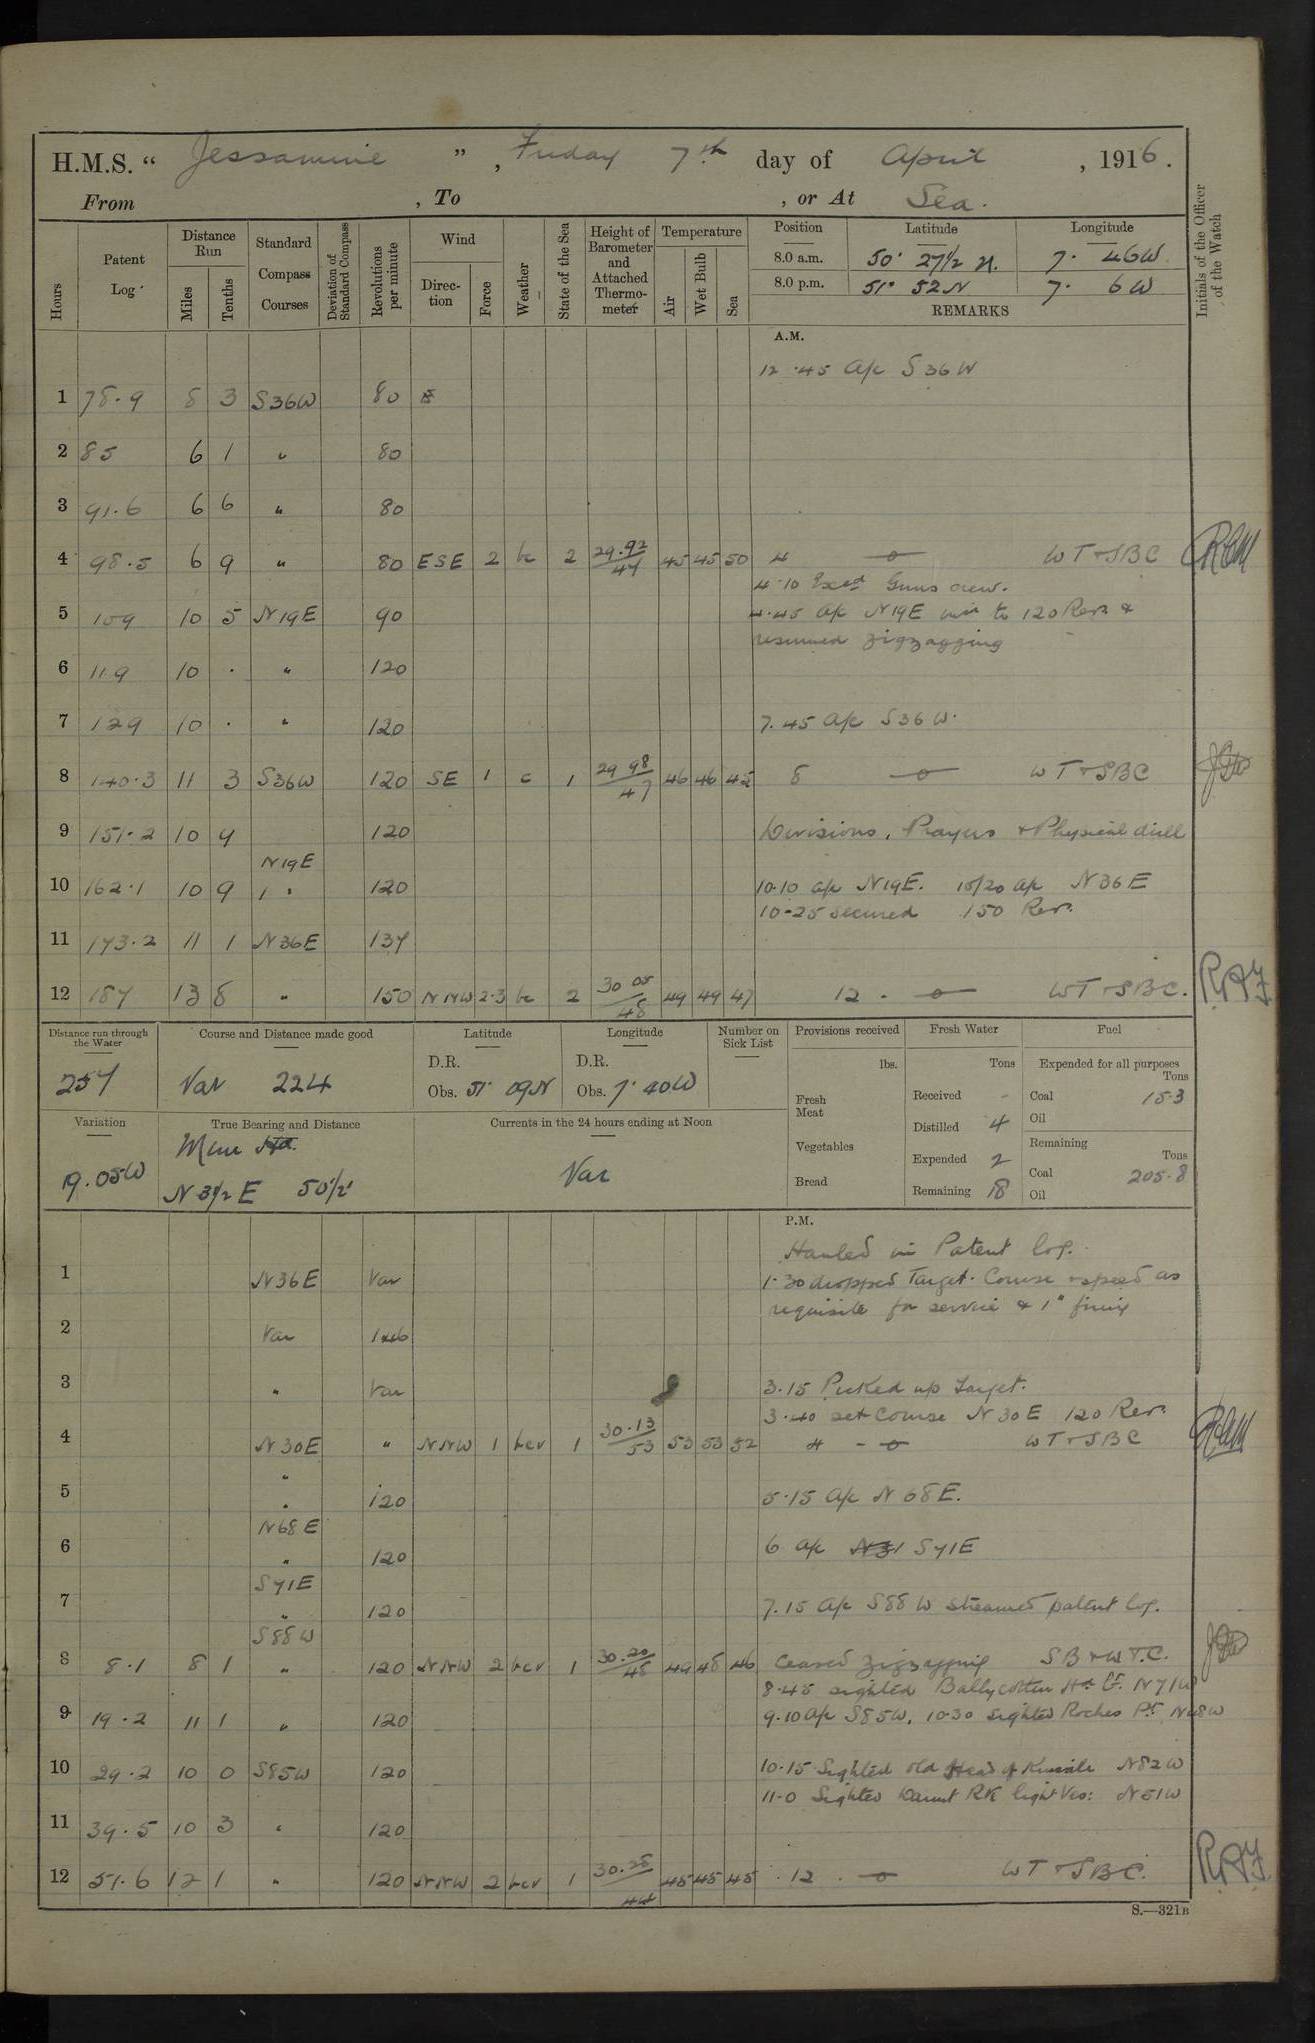 H.M.S. “ Jessamine ” , Friday 7th day of April , 1916.
From , To , or At Sea.
Hours
Patent Log
Distance Run
Miles
Tenths
Standard Compass Courses
Deviation of Standard Compass
Revolutions per minute
Wind
Direction
Force
Weather
State of the Sea
Height of Barometer and Attached Thermometer
Temperature
Air
Wet Bulb
Sea
Position Latitude Longitude
8.0 a.m. 50° 27½ N. 7. 46W.
8.0 p.m. 51° 52N 7. 6W
REMARKS
Initials of the Officer of the Watch
A.M.
12.45 A/c S36W
1 78.9 8 3 S36W 80
2 85 6 1 " 80
3 91.6 6 6 " 80
4 98.5 6 9 " 80 ESE 2 bc 2 29.92/47 45 45 50 4 —o— WT+SBC
4.10 Exed Guns crew.
5 109 10 5 N19E 90 4.45 A/c N19E to 120 Revs &
resumed zigzagging
6 119 10 . " 120
7 129 10 . " 120 7.45 A/c S36W.
8 140.3 11 3 S36W 120 SE 1 c 1 29 98/47 46 46 45 8 —o— WT+SBC
9 151.2 10 9 120 Divisions, Prayers + Physical drill
N19E
10 162.1 10 9 " 120 10.10 a/c N19E. 10/20 a/c N36E
10-25 secured 150 Rev.
11 173.2 11 1 N36E 137
12 187 13 8 " 150 NNW 2.3 bc 2 30 05/48 49 49 47 12. —o— WT+SBC.
Distance run through the Water
257
Course and Distance made good
Var 224
Latitude
D.R.
Obs. 51° 09N
Longitude
D.R.
Obs. 7° 40W
Number on Sick List
Provisions received
lbs.
Fresh Meat
Vegetables
Bread
Fresh Water
Tons
Received -
Distilled 4
Expended 2
Remaining 18
Fuel
Expended for all purposes
Tons
Coal 15.3
Oil
Remaining
Tons
Coal 205.8
Oil
Variation
19.05W
True Bearing and Distance
Mine Hd.
N 3½ E 50½'
Currents in the 24 hours ending at Noon
Var
P.M.
Hauled in Patent log.
1 N36E Var 1.30 dropped Target. Course + speed as
requisite for service & 1" firing
2 Var 146
3 " Var 3.15 Picked up Target.
3.40 set course N30E 120 Rev.
4 N30E " NNW 1 bcv 1 30.13/53 53 53 52 4 -o- WT+SBC
"
5 " 120 5.15 A/c N68E.
N68E
6 " 120 6 a/c N31 S71E
S71E
7 " 120 7.15 A/c S88W streamed patent log.
S88W
8 8.1 8 1 " 120 NNW 2 bcv 1 30.20/48 49 48 46 Ceased zigzagging SB+WT.C.
8.45 sighted Ballycotton Hd Lt. N71W
9 19.2 11 1 " 120 9.10 A/c S85W, 10.30 Sighted Roches Pt. N48W
10 29.2 10 0 S85W 120 10.15 Sighted old Head of Kinsale N82W
11.0 Sighted Daunt RK light Ves: N51W
11 39.5 10 3 " 120
12 51.6 12 1 " 120 NNW 2 bcv 1 30.25/44 45 45 45 12. —o— WT+SBC.
S.—321B